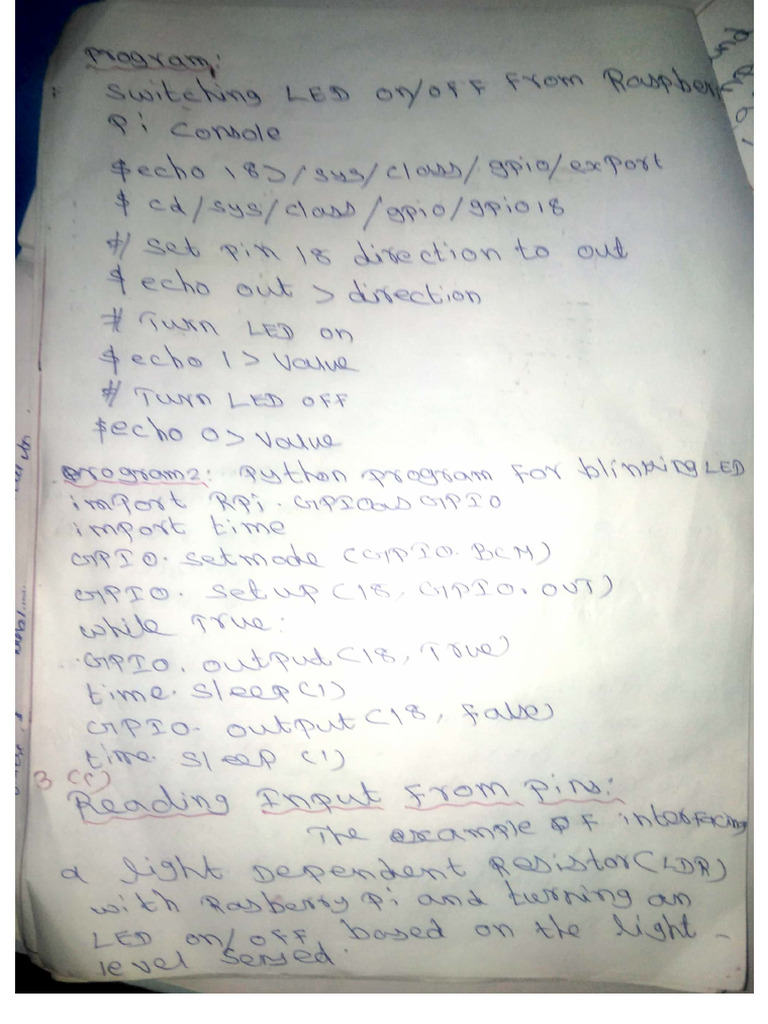 Program:
Switching LED on/off From Raspber
Pi Console
$echo 18>/sys/class/gpio/export
$ cd/sys/class/gpio/gpio18
# Set pin 18 direction to out
$ echo out > direction
# Turn LED on
$echo 1 > value
# Turn LED OFF
$echo 0> value
Program2: Python program for blinking LED
import RPi.GPIO as GPIO
import time
GPIO.setmode (GPIO.BCM)
GPIO.setup (18, GPIO.OUT)
while True:
GPIO.output (18, True)
time.sleep (1)
GPIO.output (18, False)
time.sleep (1)
3 (i)
Reading Input From pins:
The example of interfacing
a light Dependent Resistor (LDR)
with Rasberry Pi and turning an
LED on/off based on the light -
level sensed.